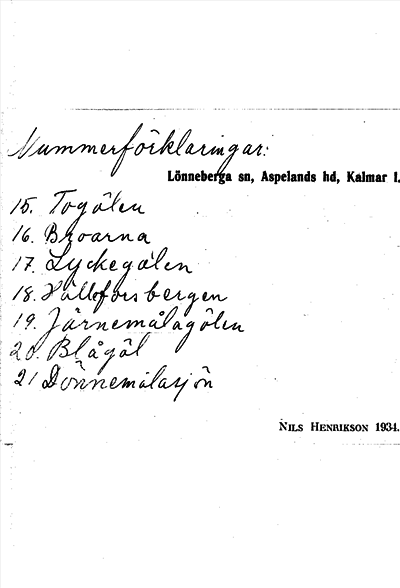 Nummerförklaringar:
Lönneberga sn, Aspelands hd, Kalmar l.
15. Togölen
16. Broarna
17. Lyckegölen
18. Hälleforsbergen
19. Järnemålagölen
20. Blågöl
21 Dönnemålasjön
NILS HENRIKSON 1934.